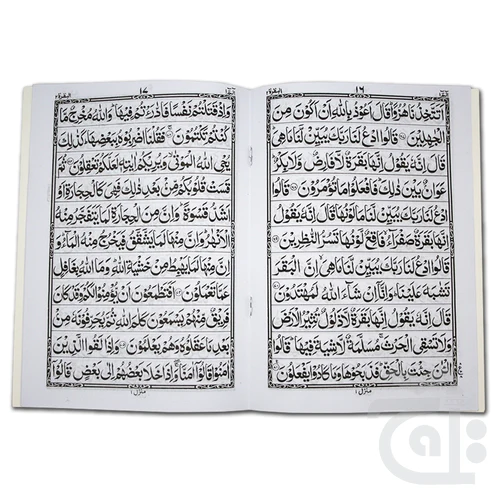 الٓمّٓ ١
١٦
البقرة ٢
اَتَتَّخِذُنَا هُزُوًا قَالَ اَعُوْذُ بِاللّٰهِ اَنْ اَكُوْنَ مِنَ
الْجٰهِلِيْنَ ۝ قَالُوا ادْعُ لَنَا رَبَّكَ يُبَيِّنْ لَّنَا مَا هِيَ
قَالَ اِنَّهٗ يَقُوْلُ اِنَّهَا بَقَرَةٌ لَّا فَارِضٌ وَّلَا بِكْرٌ
عَوَانٌۢ بَيْنَ ذٰلِكَ فَافْعَلُوْا مَا تُؤْمَرُوْنَ ۝ قَالُوا
ادْعُ لَنَا رَبَّكَ يُبَيِّنْ لَّنَا مَا لَوْنُهَا قَالَ اِنَّهٗ يَقُوْلُ
اِنَّهَا بَقَرَةٌ صَفْرَآءُ فَاقِعٌ لَّوْنُهَا تَسُرُّ النّٰظِرِيْنَ ۝
قَالُوا ادْعُ لَنَا رَبَّكَ يُبَيِّنْ لَّنَا مَا هِيَ اِنَّ الْبَقَرَ
تَشٰبَهَ عَلَيْنَا وَاِنَّاۤ اِنْ شَآءَ اللّٰهُ لَمُهْتَدُوْنَ ۝
قَالَ اِنَّهٗ يَقُوْلُ اِنَّهَا بَقَرَةٌ لَّا ذَلُوْلٌ تُثِيْرُ الْاَرْضَ
وَلَا تَسْقِي الْحَرْثَ مُسَلَّمَةٌ لَّا شِيَةَ فِيْهَا قَالُوا
الْـٰٔنَ جِئْتَ بِالْحَقِّ فَذَبَحُوْهَا وَمَا كَادُوْا يَفْعَلُوْنَ ۝
منزل ١
الٓمّٓ ١
١٧
البقرة ٢
وَاِذْ قَتَلْتُمْ نَفْسًا فَادّٰرَءْتُمْ فِيْهَا وَاللّٰهُ مُخْرِجٌ مَّا
كُنْتُمْ تَكْتُمُوْنَ ۝ فَقُلْنَا اضْرِبُوْهُ بِبَعْضِهَا كَذٰلِكَ
يُحْيِ اللّٰهُ الْمَوْتٰى وَيُرِيْكُمْ اٰيٰتِهٖ لَعَلَّكُمْ تَعْقِلُوْنَ ۝ ثُمَّ
قَسَتْ قُلُوْبُكُمْ مِّنْۢ بَعْدِ ذٰلِكَ فَهِيَ كَالْحِجَارَةِ اَوْ
اَشَدُّ قَسْوَةً وَاِنَّ مِنَ الْحِجَارَةِ لَمَا يَتَفَجَّرُ مِنْهُ
الْاَنْهٰرُ وَاِنَّ مِنْهَا لَمَا يَشَّقَّقُ فَيَخْرُجُ مِنْهُ الْمَآءُ وَ
اِنَّ مِنْهَا لَمَا يَهْبِطُ مِنْ خَشْيَةِ اللّٰهِ وَمَا اللّٰهُ بِغَافِلٍ
عَمَّا تَعْمَلُوْنَ ۝ اَفَتَطْمَعُوْنَ اَنْ يُّؤْمِنُوْا لَكُمْ وَقَدْ كَانَ
فَرِيْقٌ مِّنْهُمْ يَسْمَعُوْنَ كَلَامَ اللّٰهِ ثُمَّ يُحَرِّفُوْنَهٗ مِنْۢ
بَعْدِ مَا عَقَلُوْهُ وَهُمْ يَعْلَمُوْنَ ۝ وَاِذَا لَقُوا الَّذِيْنَ
اٰمَنُوْا قَالُوْۤا اٰمَنَّا وَاِذَا خَلَا بَعْضُهُمْ اِلٰى بَعْضٍ قَالُوْۤا
منزل ١